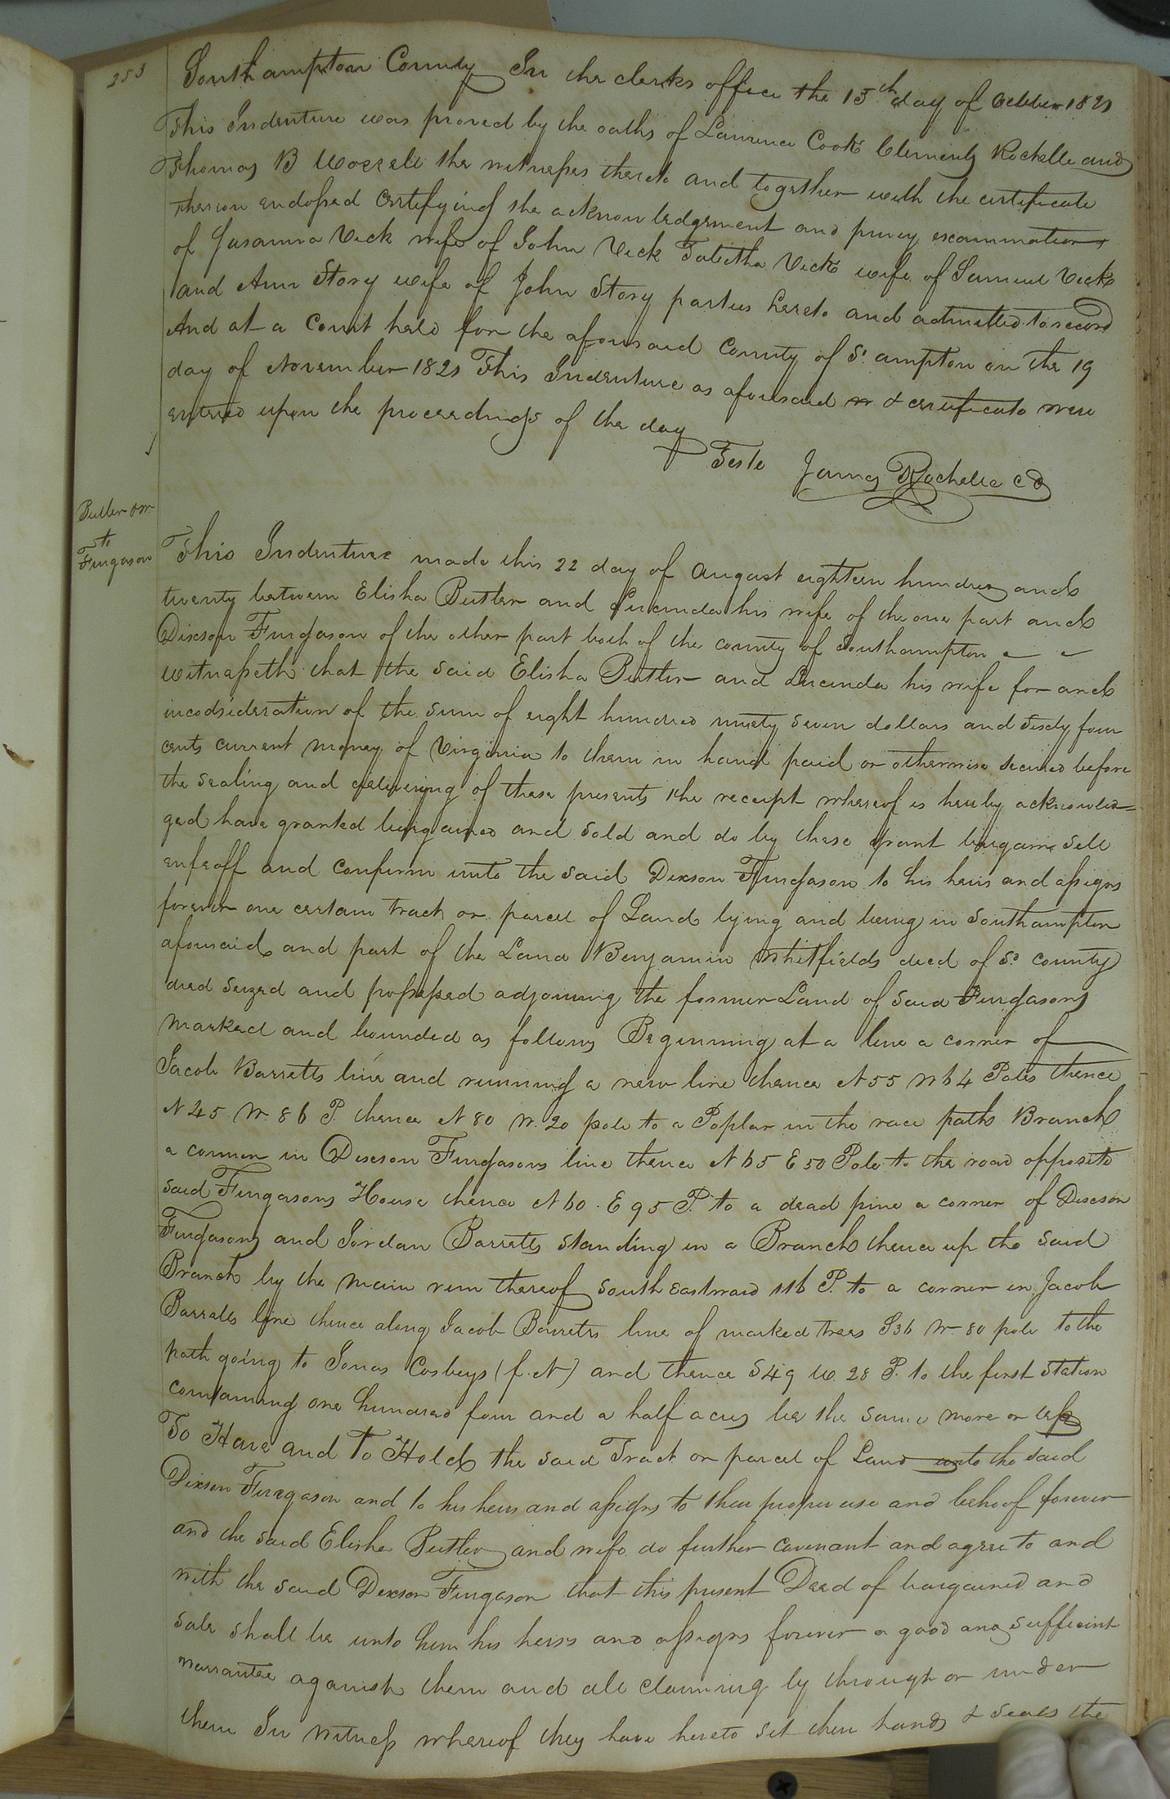 253
Southampton County In the clerks office the 15th day of October 1821
This Indenture was proved by the oaths of Lawrence Cook Clements Rochelle and
Thomas B Worrell the witnesses thereto and together with the certificate
thereon endossed certifying the acknowledgement and privy examination
of Susanna Vick wife of John Vick Tabitha Vick wife of Samuel Vick
and Ann Story wife of John Story parties hereto and admitted to record
And at a Court held for the aforesaid County of So ampton on the 19
day of November 1821 This Indenture as aforesaid & certificate were
entered upon the proceedings of the day
Teste James Rochelle CC
Butler & wr
to
Fingason
This Indenture made this 22 day of August eighteen hundred and
twenty between Elisha Butler and Lucinda his wife of the one part and
Dixson Fingason of the other part both of the county of Southampton
Witnesseth that the said Elisha Butler and Lucinda his wife for and
incodsideration of the sum of eight hundred ninety seven dollars and sixty four
cents current money of Virginia to them in hand paid or otherwise secured before
the sealing and delivering of these presents the receipt whereof is hereby acknowled=
ged have granted bargained and sold and do by these grant bargain sell
enfeoff and confirm unto the said Dixson Fingason to his heirs and assigns
forever one certain tract or parcel of Land lying and being in Southampton
aforesaid and part of the Land Benjamin Whitfields decd of Sd county
died seized and possessed adjoining the former Land of said Fingasons
marked and bounded as follows Beginning at a line a corner of
Jacob Barretts line and running a new line thence N 55 W 64 Poles thence
N 45 W 86 P thence N 80 W. 20 pole to a Poplar in the race paths Branch
a corner in Dixson Fingasons line thence N 65 E 50 Pole to the road opposite
said Fingasons House thence N 60 . E 95 P. to a dead pine a corner of Dixson
Fingasons and Jordan Barretts standing in a Branch thence up the said
Branch by the main run thereof south Eastward 116 P. to a corner in Jacob
Barretts line thence along Jacob Barretts line of marked trees S 36 W 80 pole to the
path going to Jonas Cosbeys (f. N) and thence S 49 W. 28 P. to the first station
containing one hundred four and a half acres be the same more or less
To Have and To Hold the said Tract or parcel of Land unto the said
Dixson Fingason and to his heirs and assigns to their proper use and behoof forever
and the said Elisha Butler and wife do further covenant and agree to and
with the said Dixson Fingason that this present Deed of bargained and
sale shall be unto him his heirs and assigns forever a good and sufficient
warrantee against them and all claiming by through or under
them In witness whereof they have hereto set their hands & seals the